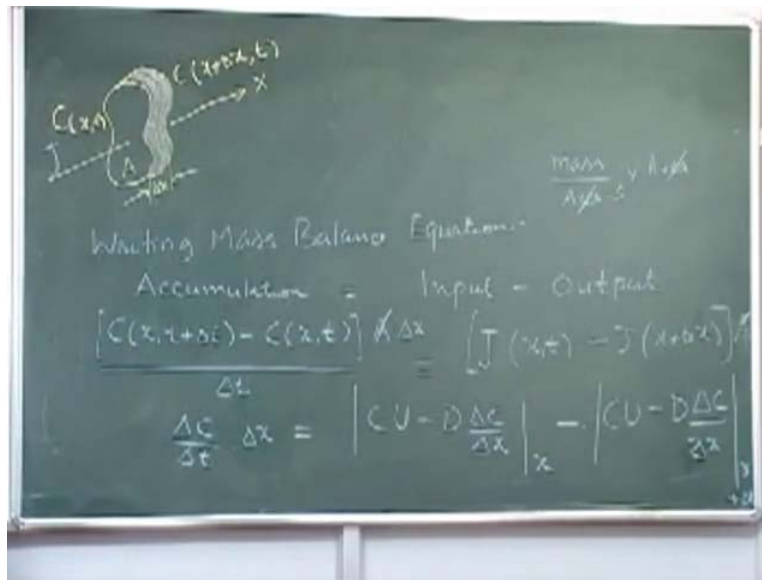 C(x+Δx,t)
X
C(x,t)
J
A
Δx
mass
A
Writing Mass Balance Equation-
Accumulation = Input - Output
[C(x,x+Δt) - C(x,t)] A Δx = [J(x,t) - J(x+Δx)] A
Δt
ΔC/Δt Δx = |CU - D ΔC/Δx|x - |CU - D ΔC/Δx|x